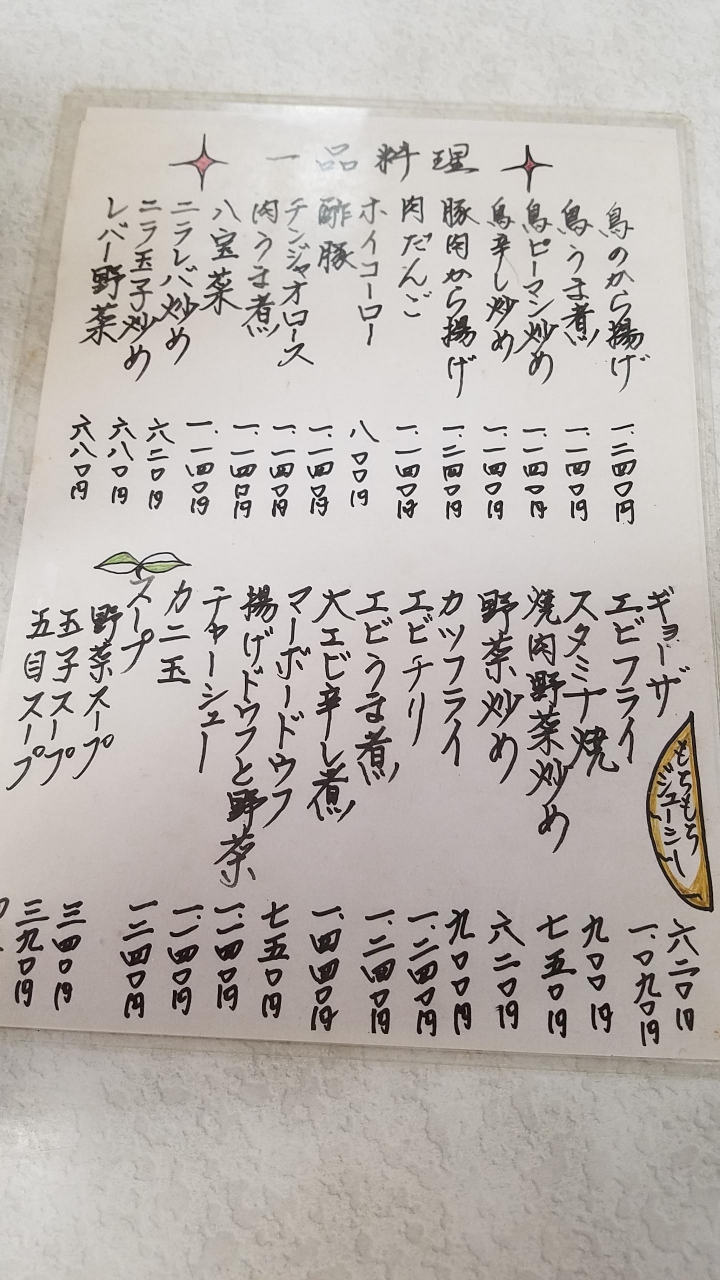 一品料理
鳥のから揚げ 一.二四〇円
鳥うま煮 一.一四〇円
鳥ピーマン炒め 一.一四〇円
鳥辛し炒め 一.一四〇円
豚肉から揚げ 一.二四〇円
肉だんご 一.一四〇円
ホイコーロー 八〇〇円
酢豚 一.一四〇円
チンジャオロース 一.一四〇円
肉うま煮 一.一四〇円
八宝菜 一.一四〇円
ニラレバ炒め 六二〇円
ニラ玉子炒め 六八〇円
レバー野菜 六八〇円
ギョーザ 六二〇円
もちもち
ジューシー
エビフライ 一.〇九〇円
スタミナ焼 九〇〇円
焼肉野菜炒め 七五〇円
野菜炒め 六二〇円
カツフライ 九〇〇円
エビチリ 一.二四〇円
エビうま煮 一.二四〇円
大エビ辛し煮 一.四四〇円
マーボードウフ 七五〇円
揚げドウフと野菜 一.一四〇円
チャーシュー 一.一四〇円
カニ玉 一.二四〇円
スープ
野菜スープ 三四〇円
玉子スープ 三九〇円
五目スープ